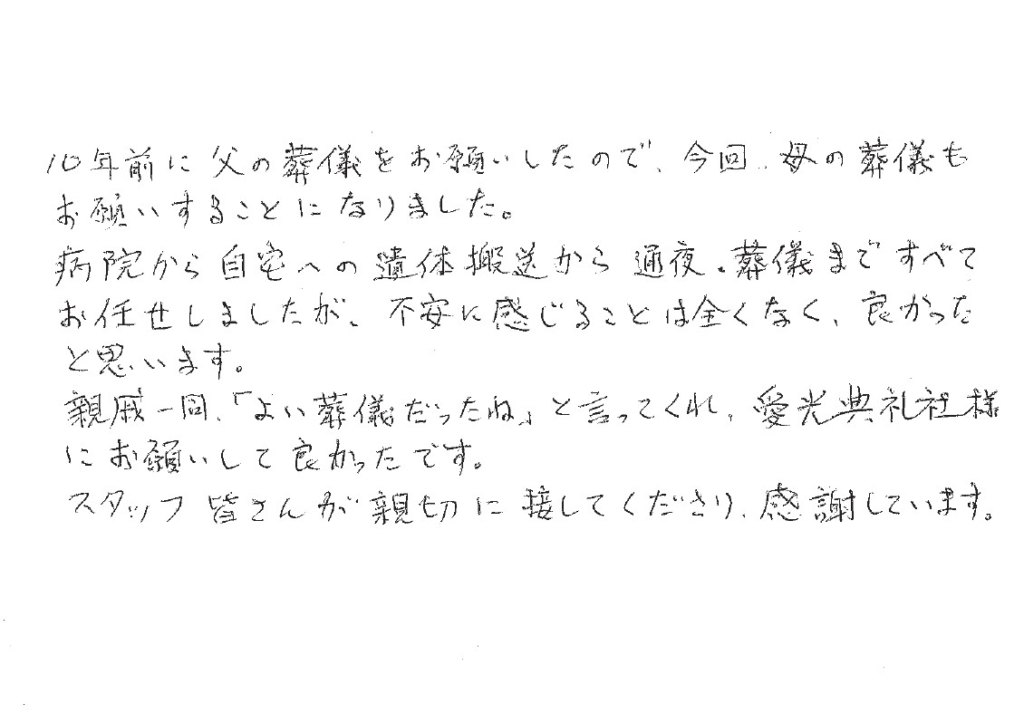 10年前に父の葬儀をお願いしたので、今回、母の葬儀も
お願いすることになりました。
病院から自宅への遺体搬送から通夜、葬儀まですべて
お任せしましたが、不安に感じることは全くなく、良かった
と思います。
親戚一同、「よい葬儀だったね」と言ってくれ、愛光典礼社様
にお願いして良かったです。
スタッフ皆さんが親切に接してくださり、感謝しています。